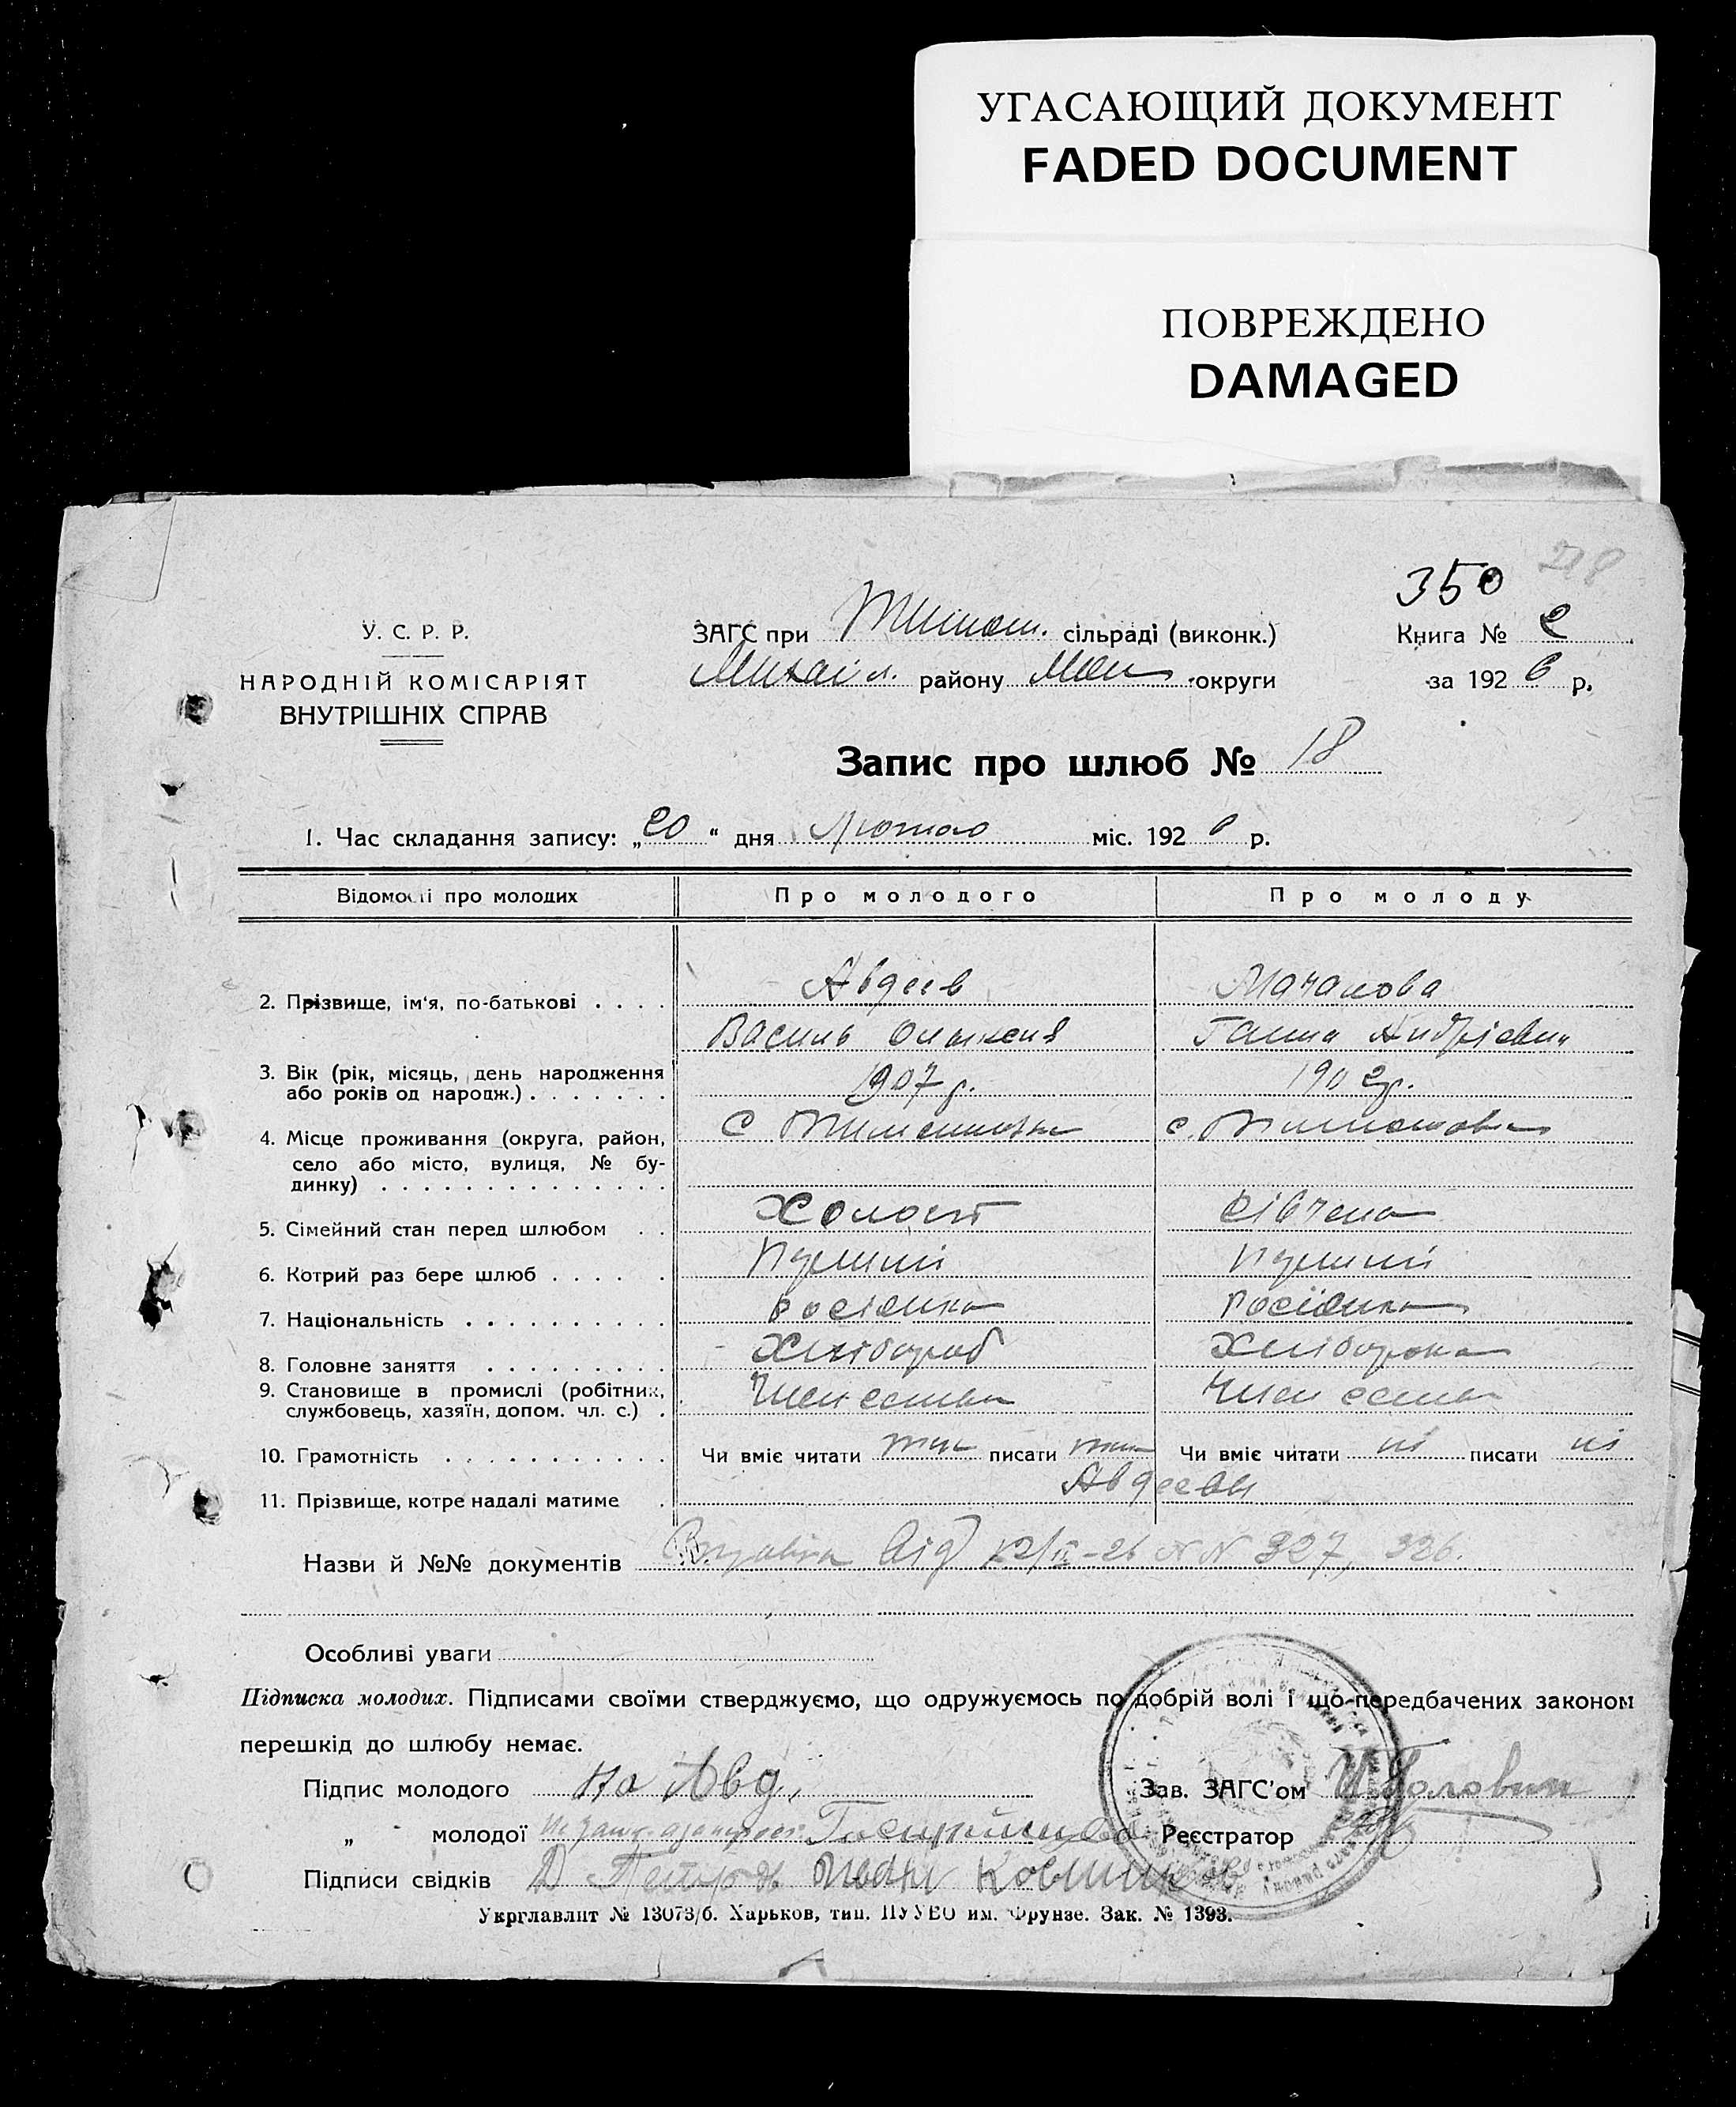 УГАСАЮЩИЙ ДОКУМЕНТ
FADED DOCUMENT
ПОВРЕЖДЕНО
DAMAGED
218
350
У. С. Р. Р.
НАРОДНІЙ КОМІСАРІЯТ
ВНУТРІШНІХ СПРАВ
ЗАГС при Тимош. сільраді (виконк.)
Михайл. району Мел округи
Книга № 2
за 1926 р.
Запис про шлюб № 18
1. Час складання запису: „20“ дня Лютого міс. 1926 р.
Відомості про молодих Про молодого Про молоду
2. Прізвище, ім'я, по-батькові . . . . Авдеев Мачанова
Василь Ганна Андріевна
3. Вік (рік, місяць, день народження 1907 р. 1902 р.
або років од народж.) . . . . . . .
4. Місце проживання (округа, район, с Тимошовка с. Тимошовка
село або місто, вулиця, № бу-
динку) . . . . . . . . . . . . . .
5. Сімейний стан перед шлюбом . . Холост дівчена
6. Котрий раз бере шлюб . . . . . Перший Перший
7. Національність . . . . . . . . . . росіянка росіянка
8. Головне заняття . . . . . . . . . Хлібороб Хліборобка
9. Становище в промислі (робітник, Член семьи Член семьи
службовець, хазяїн, допом. чл. с.) .
10. Грамотність . . . . . . . . . . . Чи вміє читати так писати так Чи вміє читати ні писати ні
11. Прізвище, котре надалі матиме . Авдееви
Назви й №№ документів від 12/II-26 №№ 327, 326.
Особливі уваги
Підписка молодих. Підписами своїми стверджуємо, що одружуємось по добрій волі і що передбачених законом
перешкід до шлюбу немає.
Підпис молодого Авд. Зав. ЗАГС'ом Головин
„ молодої Реєстратор
Підписи свідків Д Петров Иван
Укрглавлит № 13073/б. Харьков, тип. ПУУВО им. Фрунзе. Зак. № 1393.